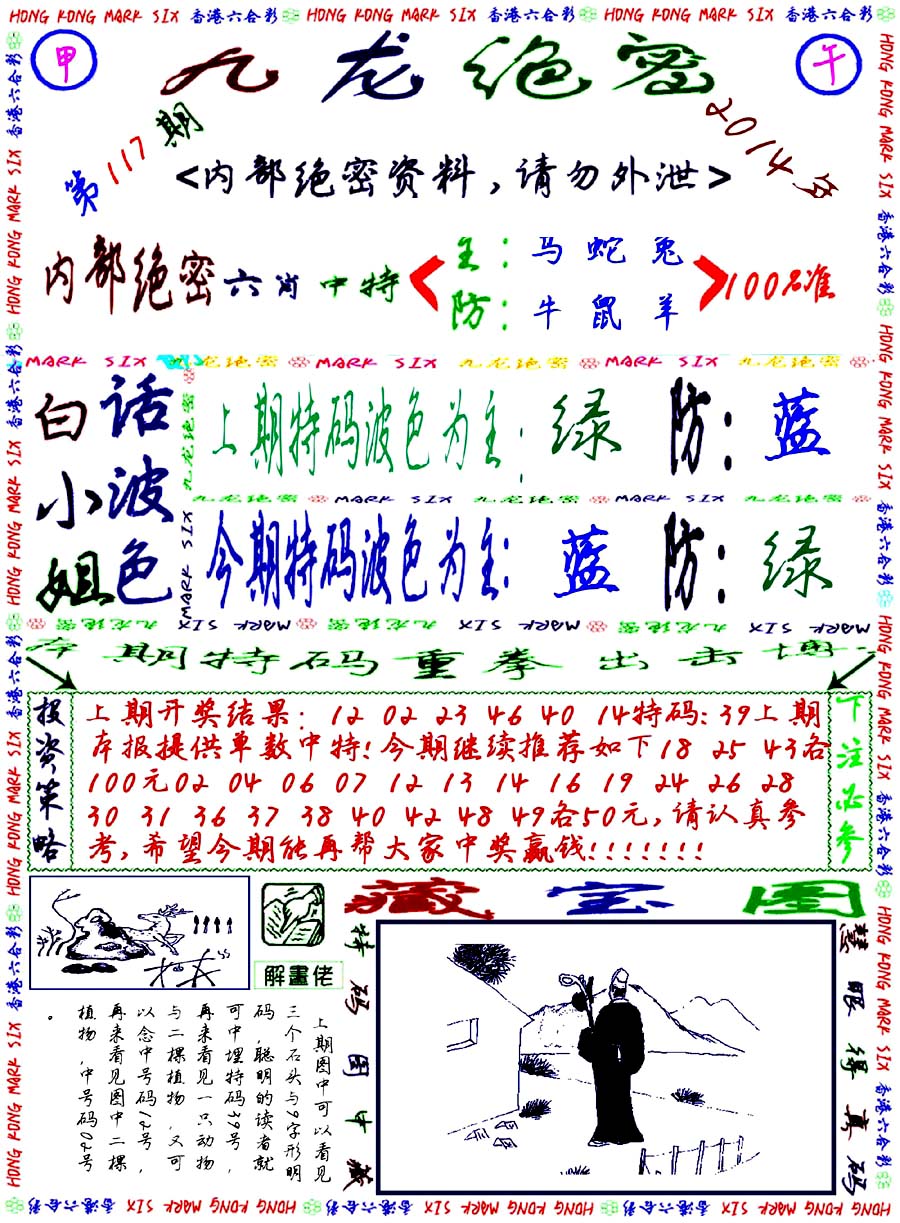 HONG KONG MARK SIX 香港六合彩 HONG KONG MARK SIX 香港六合彩 HONG KONG MARK SIX 香港六合彩
甲
九龙绝密
午
第117期
2014年
<内部绝密资料,请勿外泄>
内部绝密六肖中特
主:马 蛇 兔
防:牛 鼠 羊
100%准
MARK SIX 九龙绝密 MARK SIX 九龙绝密 MARK SIX 九龙绝密
白话小波姐色
上期特码波色为主:绿 防:蓝
九龙绝密 MARK SIX 九龙绝密 MARK SIX 九龙绝密
今期特码波色为主:蓝 防:绿
九龙绝密 MARK SIX 九龙绝密 MARK SIX 九龙绝密 MARK SIX
本期特码重拳出击博
投资策略
上期开奖结果:12 02 23 46 40 14特码:39上期
本报提供单数中特!今期继续推荐如下18 25 43各
100元02 04 06 07 12 13 14 16 19 24 26 28
30 31 36 37 38 40 42 48 49各50元,请认真参
考,希望今期能再帮大家中奖赢钱!!!!!!!
下注必参
藏宝图
解畫佬
特码图中藏
慧眼得真码
上期图中可以看见
三个石头与9字形明
码,聪明的读者就
可中埋特码39号,
再来看见一只动物
与二棵植物,又可
以念中号码12号,
再来看见图中二棵
植物,中号码02号
。
HONG KONG MARK SIX 香港六合彩 HONG KONG MARK SIX 香港六合彩 HONG KONG MARK SIX 香港六合彩